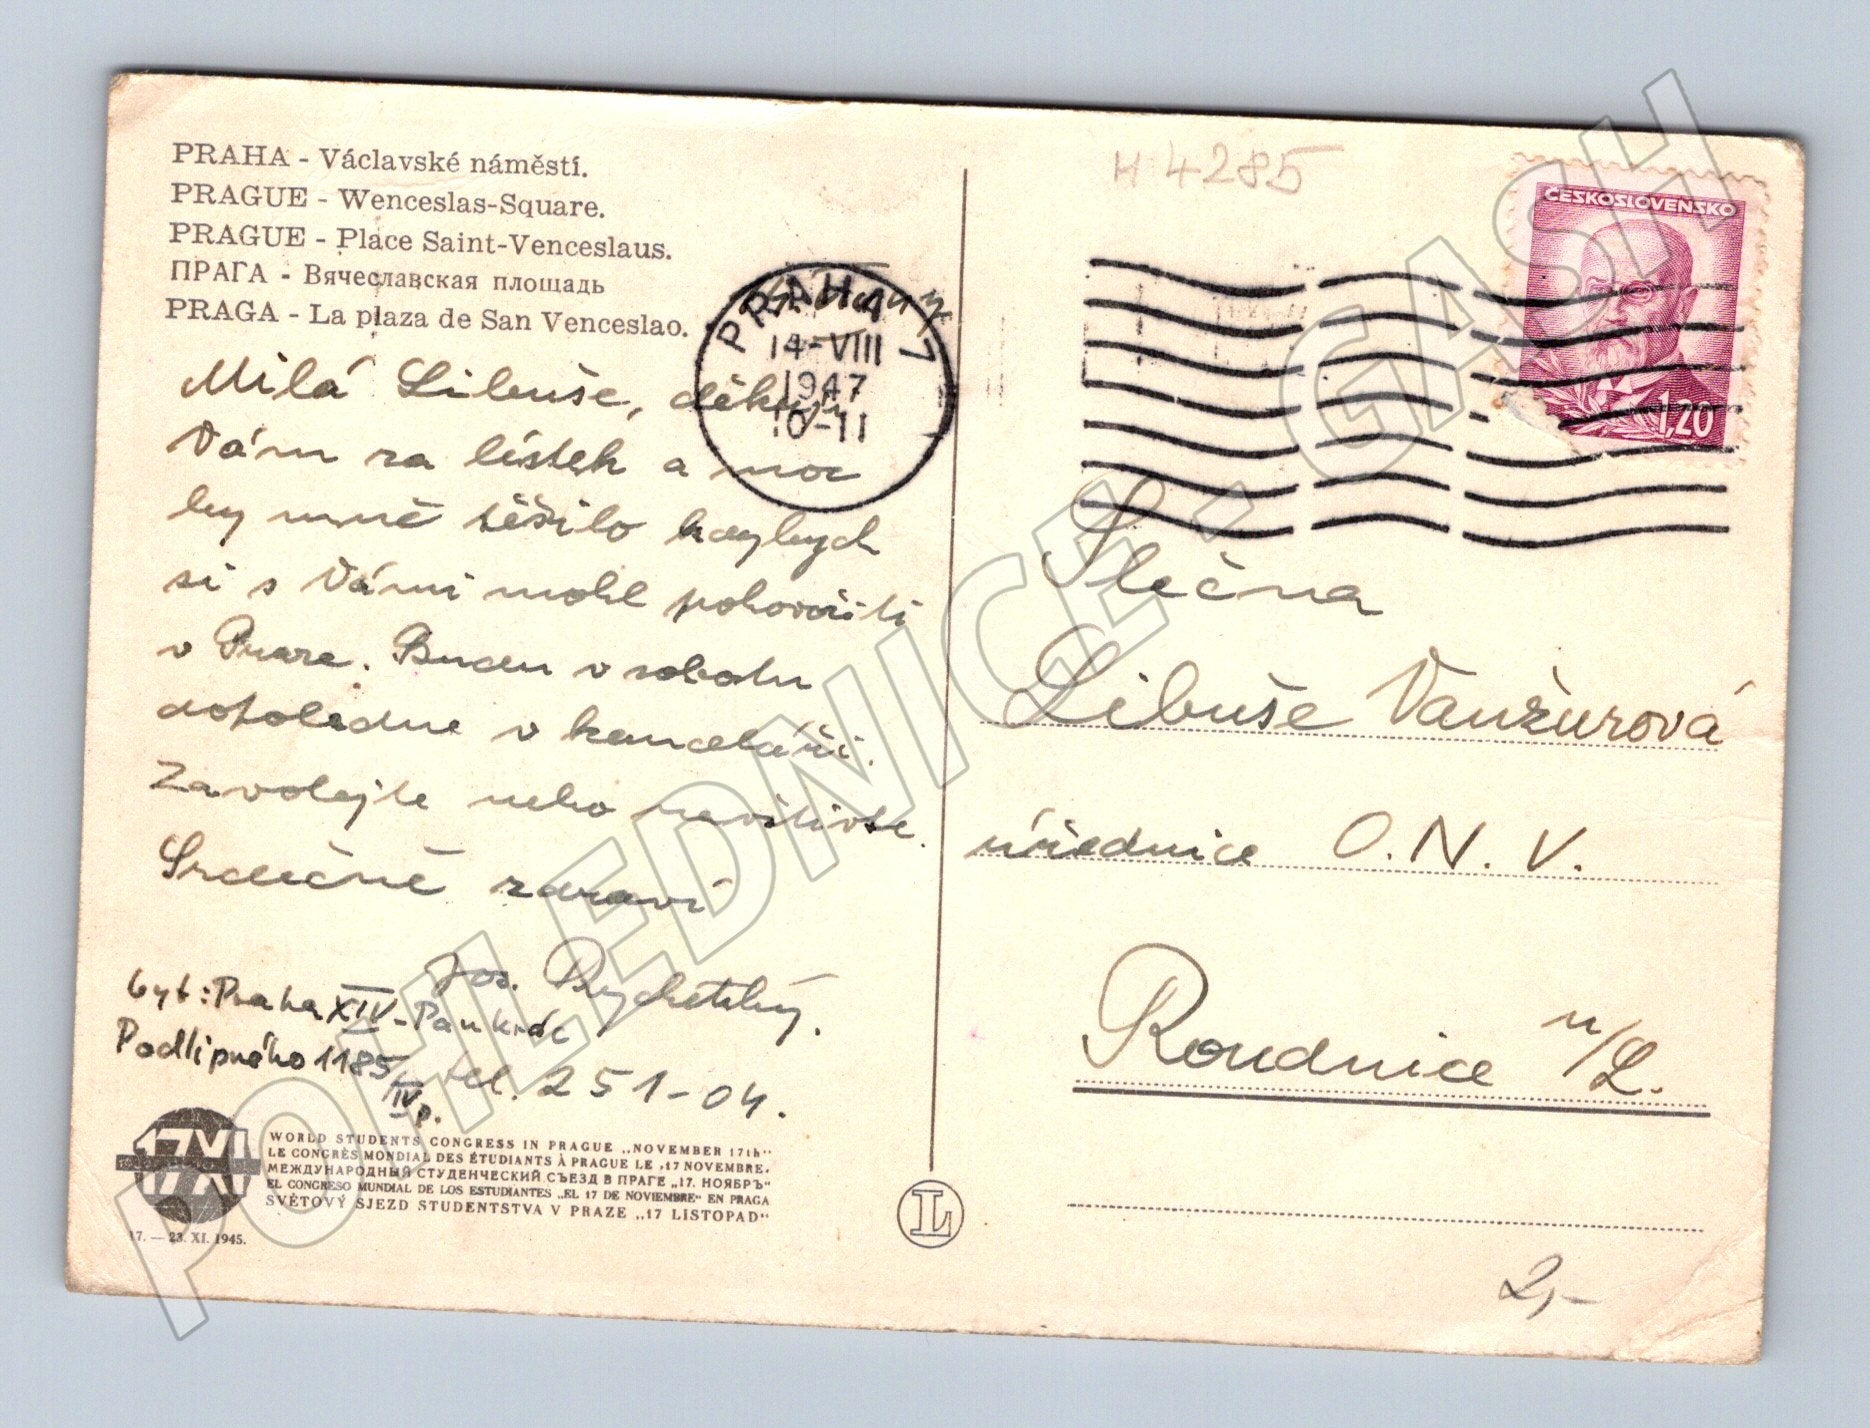 PRAHA - Václavské náměstí.
PRAGUE - Wenceslas-Square.
PRAGUE - Place Saint-Venceslaus.
ПРАГА - Вячеславская площадь
PRAGA - La plaza de San Venceslao.
Milá Libuše, děkuji
Vám za lístek a moc
by mně těšilo kdybych
si s Vámi mohl pohovořiti
v Praze. Budu v sobotu
dopoledne v kanceláři.
Zavolejte nebo navštivte.
Srdečně zdraví
Jos. Rychetský.
byt: Praha XIV - Pankrác
Podlipného 1185
IV p.
tel. 251-04.
17 XI
17. — 23. XI. 1945.
WORLD STUDENTS CONGRESS IN PRAGUE „NOVEMBER 17th"
LE CONGRÈS MONDIAL DES ÉTUDIANTS À PRAGUE LE ,17 NOVEMBRE.
МЕЖДУНАРОДНЫЙ СТУДЕНЧЕСКИЙ СЪЕЗД В ПРАГЕ „17. НОЯБРЪ"
EL CONGRESO MUNDIAL DE LOS ESTUDIANTES „EL 17 DE NOVIEMBRE" EN PRAGA
SVĚTOVÝ SJEZD STUDENTSTVA V PRAZE „17 LISTOPAD"
L
PRAHA 7
14-VIII
1947
10-11
H 4285
ČESKOSLOVENSKO
1,20
Slečna
Libuše Vanžurová
úřednice O.N.V.
Roudnice n/L.
2,-
POHLEDNICE - GASH